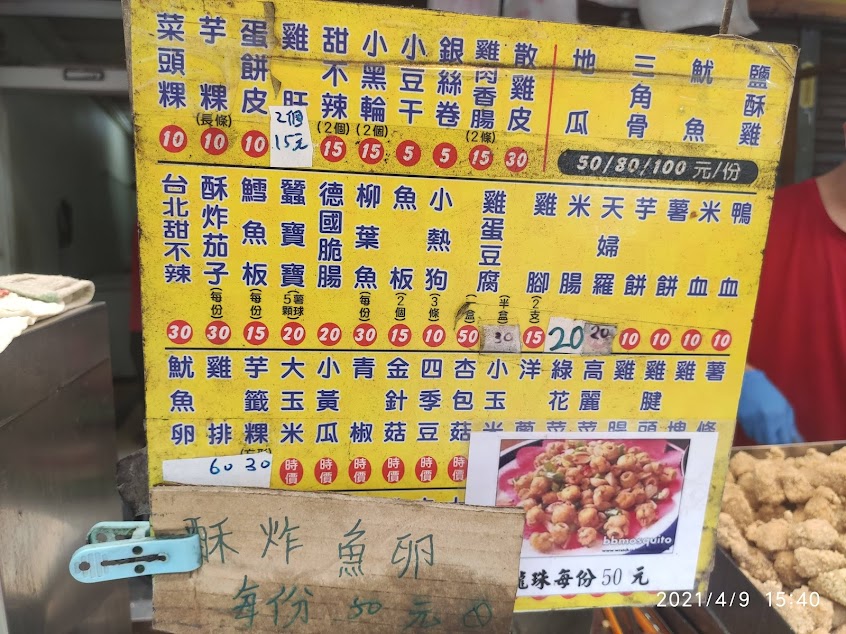 菜頭粿 10
芋粿 (長條) 10
蛋餅皮 10
雞肝 2個 15元
甜不辣 (2個) 15
小黑輪 (2個) 15
小豆干 5
銀絲卷 5
雞肉香腸 (2條) 15
散雞皮 30
地瓜
三角骨
魷魚
鹽酥雞
50/80/100 元/份
台北甜不辣 30
酥炸茄子 (每份) 30
鱈魚板 (每份) 15
蠶寶寶 (薯球5顆) 20
德國脆腸 20
柳葉魚 (每份) 30
魚板 (2個) 15
小熱狗 (3條) 10
雞蛋豆腐 (一盒) 50 (半盒) 30
雞腳 (2支) 15
米腸 20
天婦羅 20
芋餅 10
薯餅 10
米血 10
鴨血 10
魷魚卵
雞排 60
芋籤粿 30
大玉米 時價
小黃瓜 時價
青椒 時價
金針菇 時價
四季豆 時價
杏包菇 時價
小玉米
洋蔥
綠花菜
高麗菜
雞腸
雞腱頭
雞塊
薯條
酥炸魚卵
每份 50 元
bbmosquito
龍珠每份50元
2021/4/9 15:40